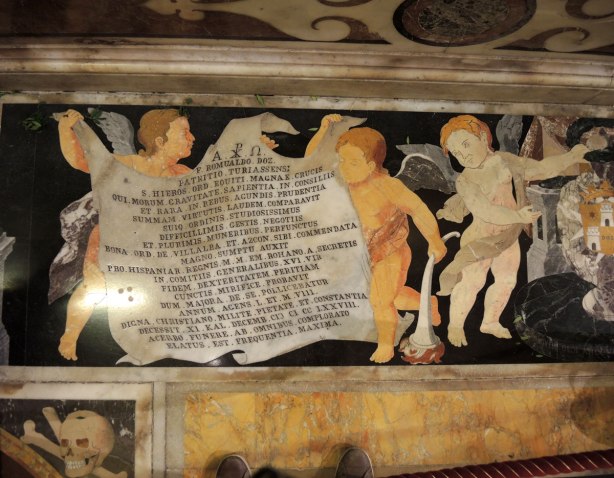 Α ☧ Ω
F. ROMUALDO. DOZ.
PATRITIO. TURIASSENSI
S. HIEROS. ORD. EQUITI. MAGNAE. CRUCIS
QUI. MORUM. GRAVITATE. SAPIENTIA. IN. CONSILIIS
ET. RARA. IN. REBUS. AGUNDIS. PRUDENTIA
SUMMAM. VIRTUTIS. LAUDEM. COMPARAVIT
SUIQ. ORDINIS. STUDIOSISSIMUS
DIFFICILLIMIS. GESTIS. NEGOTIIS
ET. PLURIMIS. MUNERIBUS. PERFUNCTUS
BONA. ORD. DE. VILLALBA. ET. AZCON. SIBI. COMMENDATA
MAGNO. SUMPTU. AUXIT
PRO. HISPANIAR. REGNIS. M. M. EM. ROHANO. A. SECRETIS
IN. COMITIIS. GENERALIBUS. XVI. VIR
FIDEM. DEXTERITATEM. PERITIAM
CUNCTIS. MIRIFICE. PROBAVIT
DUM. MAJORA. DE. SE. POLLICEBATUR
ANNUM. AGENS. L. ET. M. VIII.
DIGNA. CHRISTIANO. MILITE. PIETATE. ET. CONSTANTIA
DECESSIT. XI. KAL. DECEMB. CIↃ IↃ CC LXXXIII.
ACERBO. FUNERE. AB. OMNIBUS. COMPLORATO
ELATUS. EST. FREQUENTIA. MAXIMA.